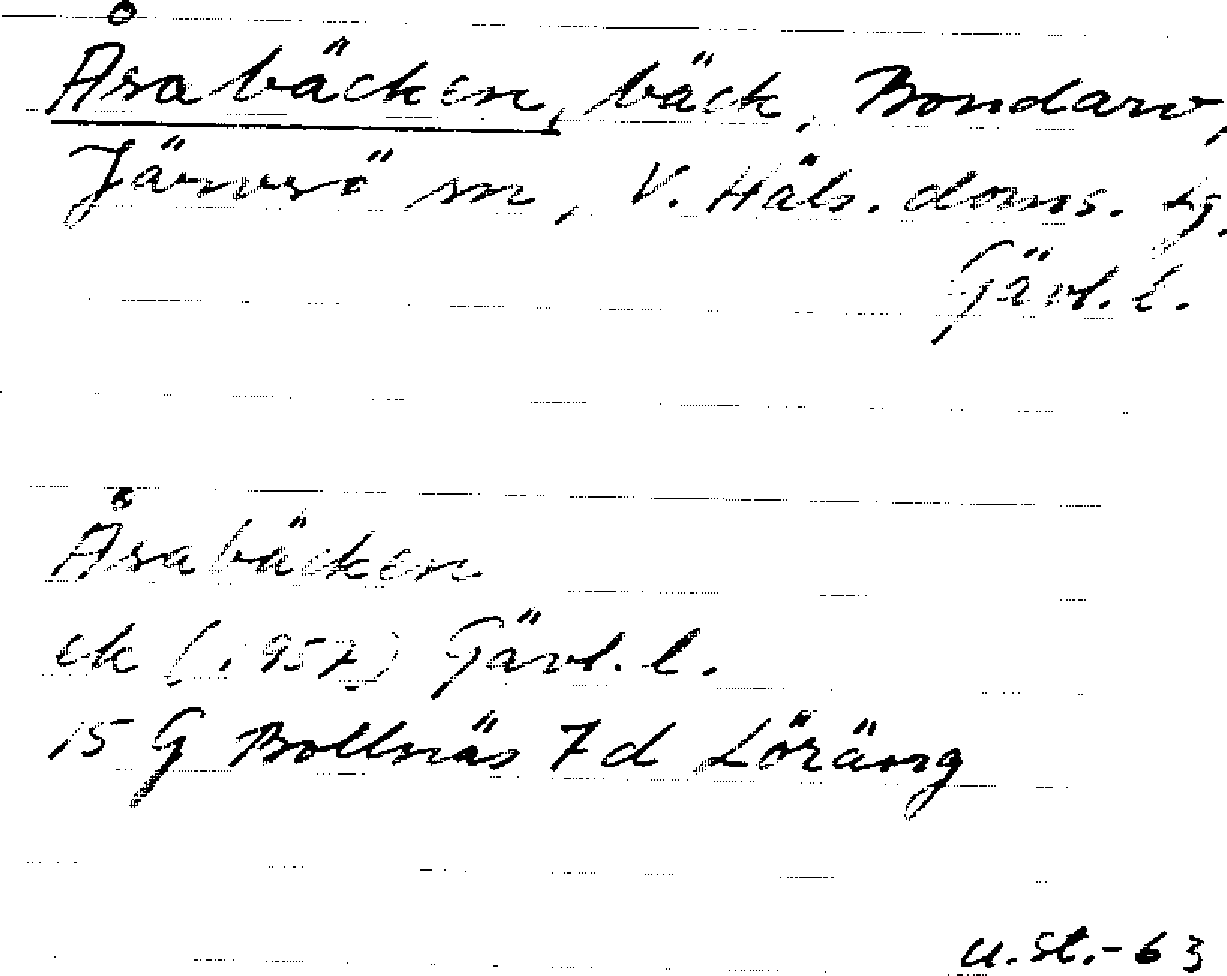 Åsabäcken, bäck, Bondarv,
Järvsö sn, V. Häls. doms. tg.
Gävl. l.
Åsabäcken
ek (1957) Gävl. l.
15 G Bollnäs 7 d Löräng
U. St. - 63